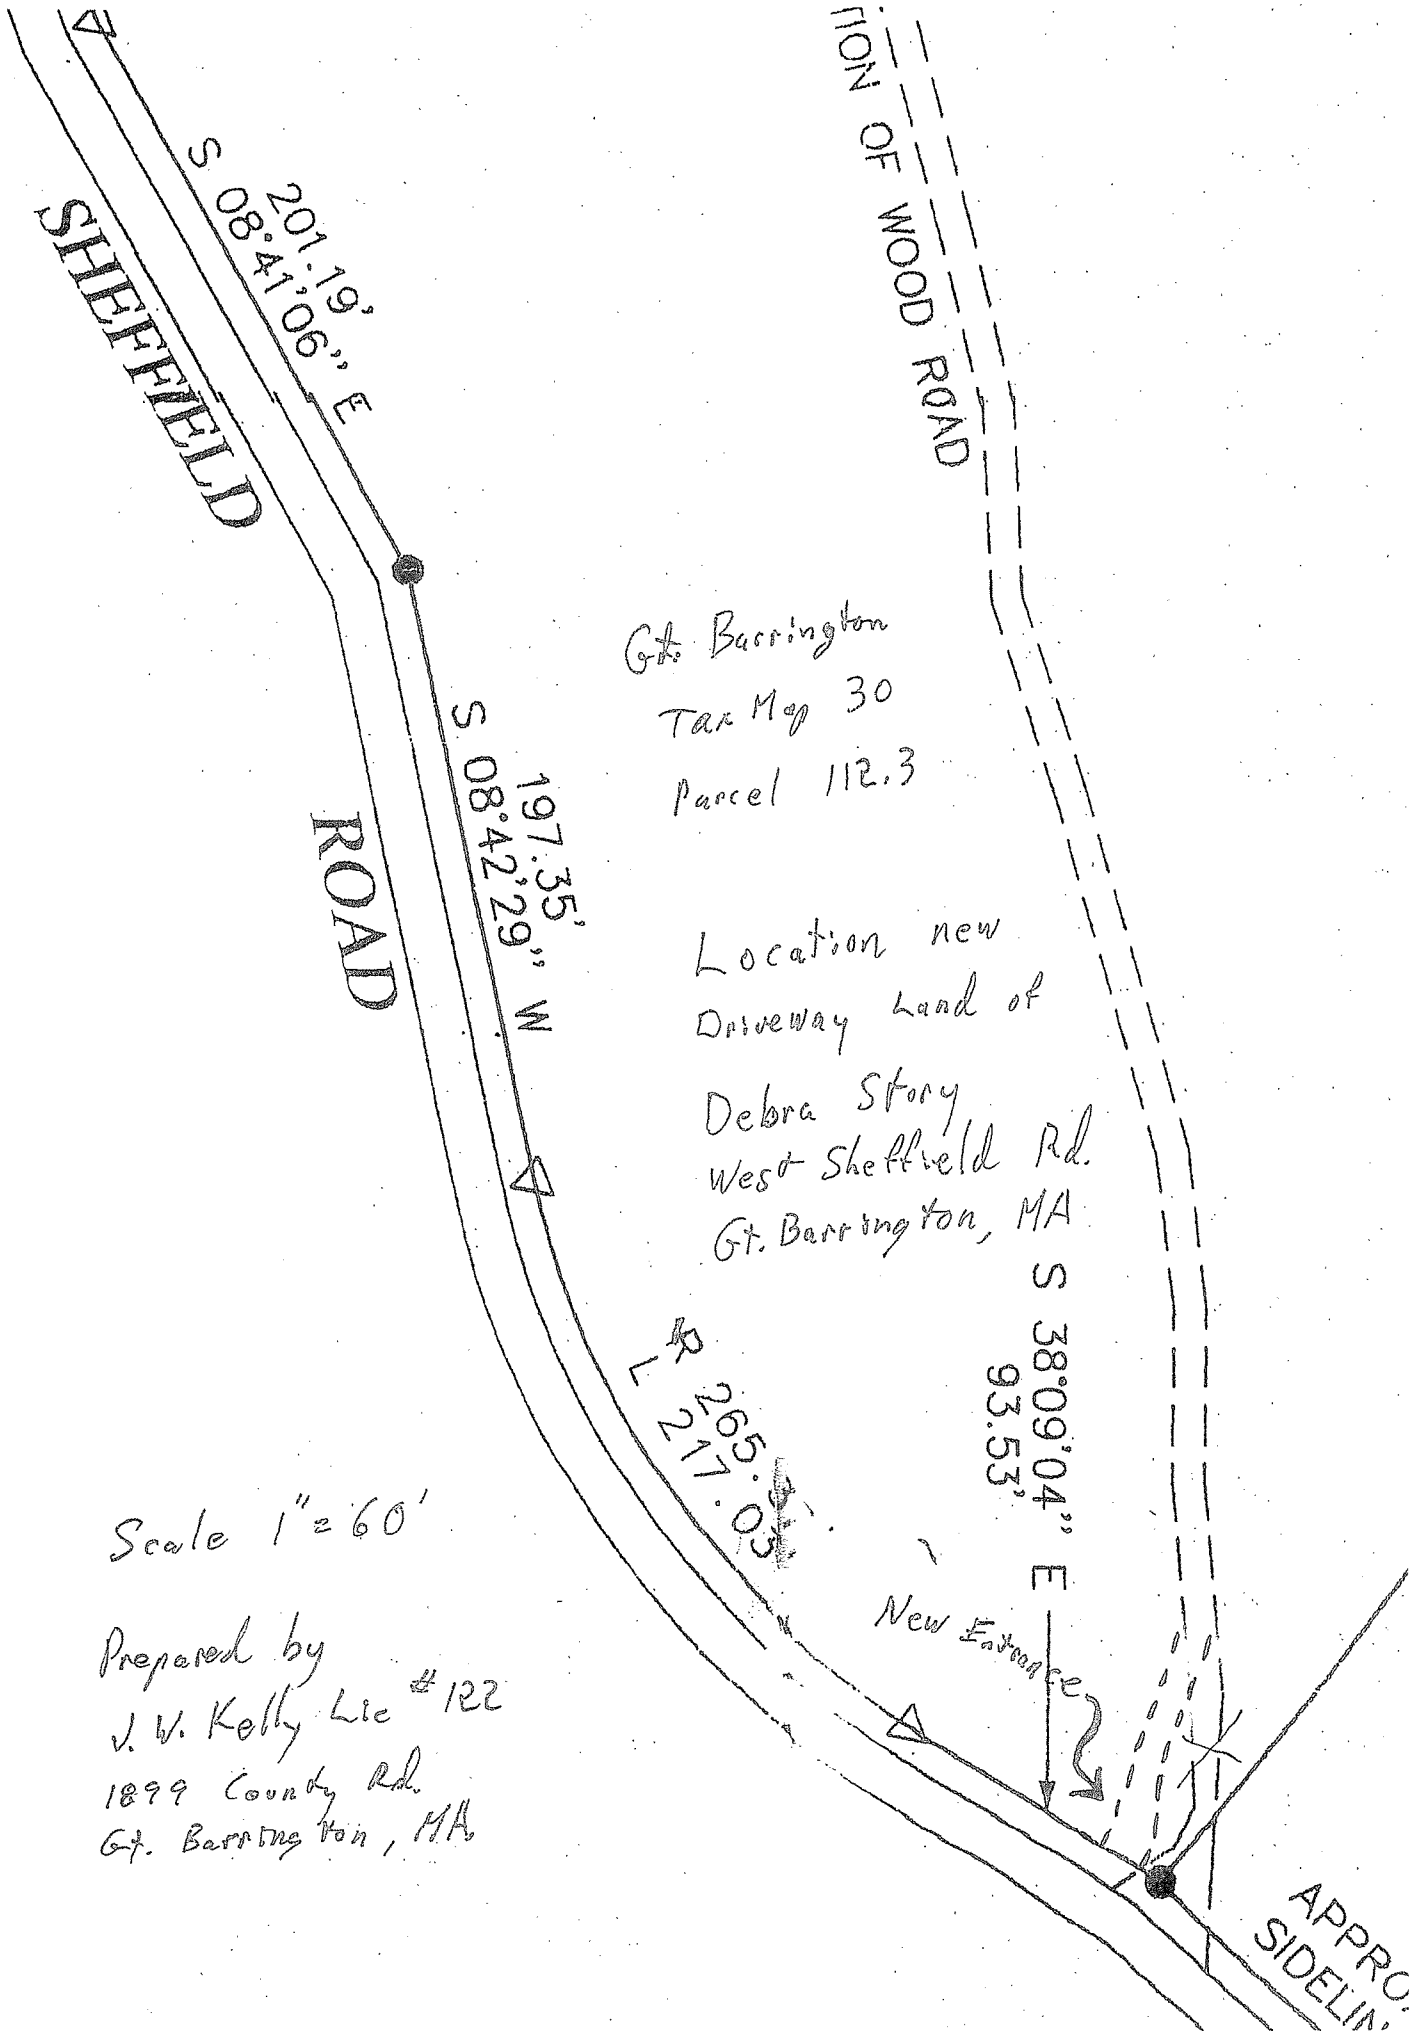 TION OF WOOD ROAD
201.19'
S 08°41'06" E
SHEFFIELD
ROAD
197.35'
S 08°42'29" W
Gt. Barrington
Tax Map 30
Parcel 112.3
Location new
Driveway Land of
Debra Story
West Sheffield Rd.
Gt. Barrington, MA
S 38°09'04" E
93.53'
R 265.
L 217.03
New Entrance
Scale 1" = 60'
Prepared by
J. W. Kelly Lic #122
1899 County Rd.
Gt. Barrington, MA.
APPRO
SIDELIN